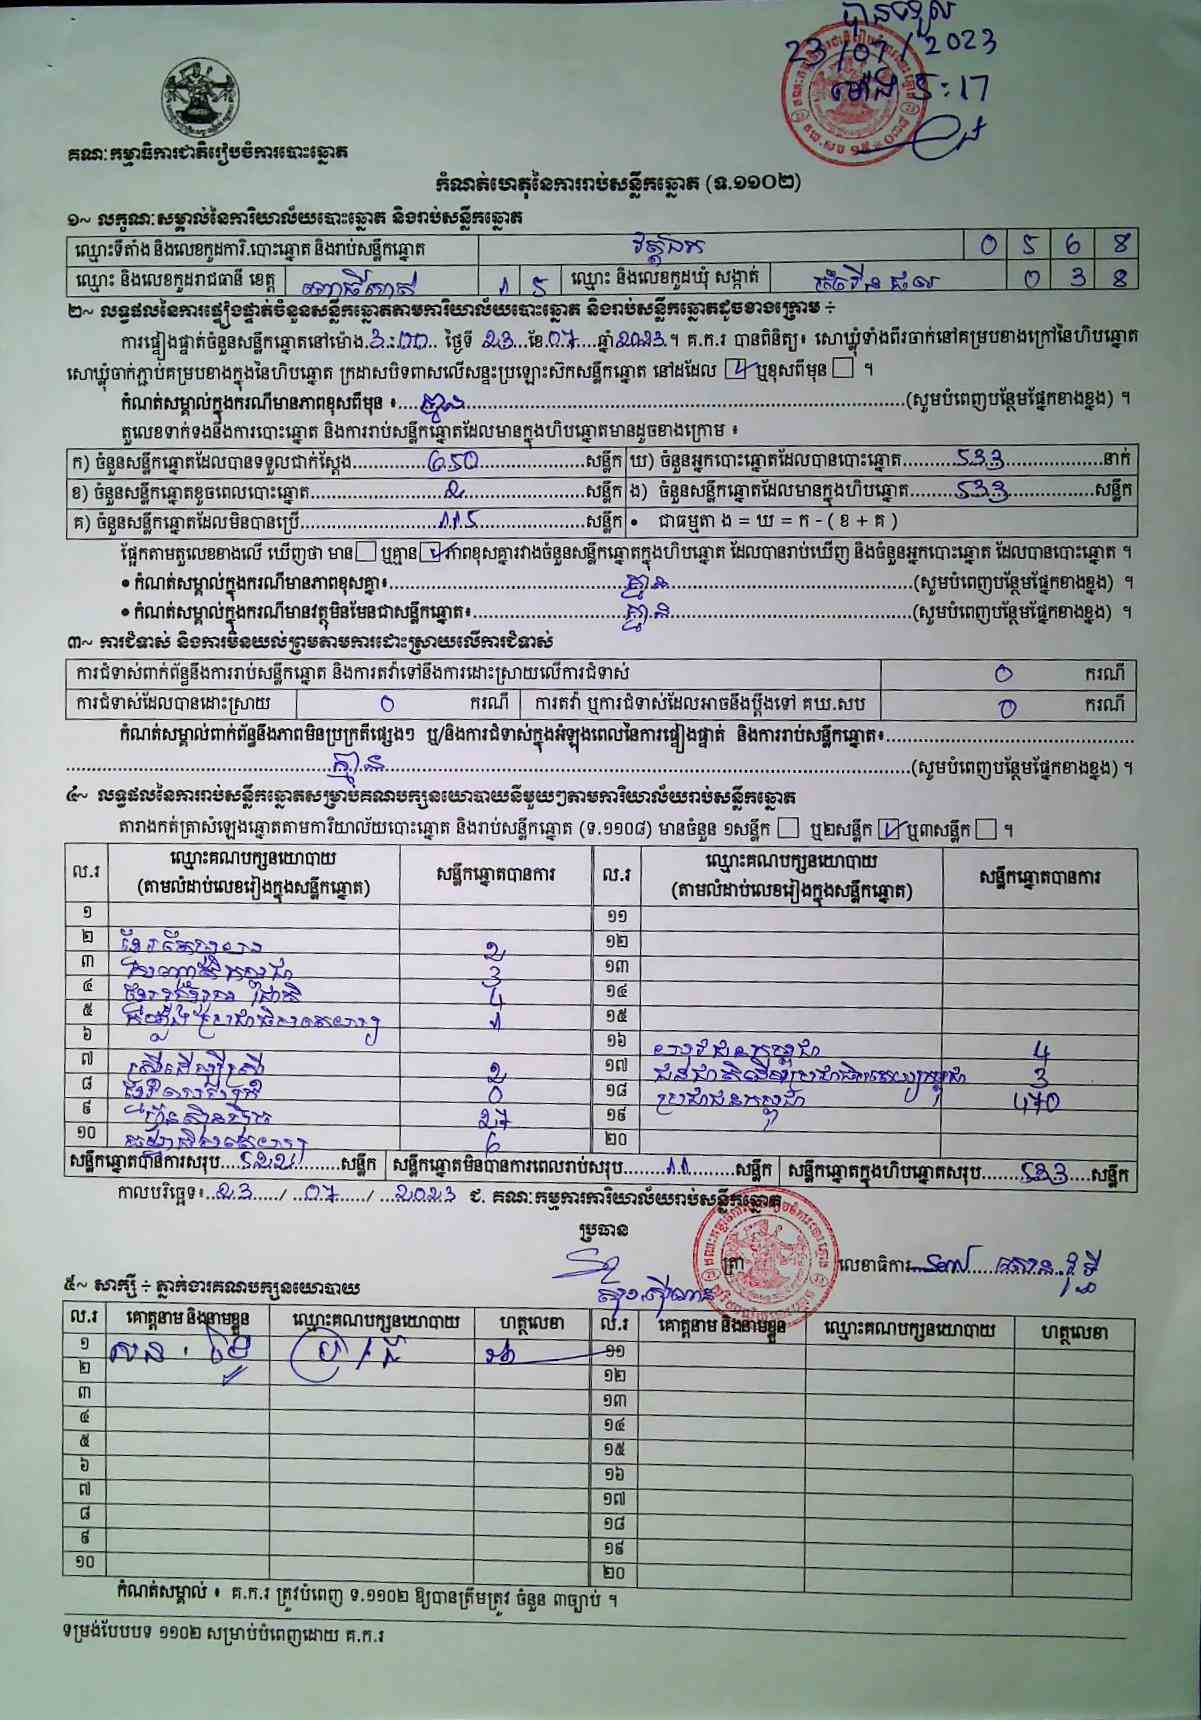 បានទទួល
23/07/2023
ម៉ោង 5:17
គណៈកម្មាធិការជាតិរៀបចំការបោះឆ្នោត
កំណត់ហេតុនៃការរាប់សន្លឹកឆ្នោត (ទ.១១០២)
១~ លក្ខណៈសម្គាល់នៃការិយាល័យបោះឆ្នោត និងរាប់សន្លឹកឆ្នោត
ឈ្មោះទីតាំង និងលេខកូដការិ.បោះឆ្នោត និងរាប់សន្លឹកឆ្នោត 0 5 6 8
ឈ្មោះ និងលេខកូដរាជធានី ខេត្ត ពោធិ៍សាត់ 1 5 ឈ្មោះ និងលេខកូដឃុំ សង្កាត់ 0 3 8
២~ លទ្ធផលនៃការផ្ទៀងផ្ទាត់ចំនួនសន្លឹកឆ្នោតតាមការិយាល័យបោះឆ្នោត និងរាប់សន្លឹកឆ្នោតដូចខាងក្រោម ÷
ការផ្ទៀងផ្ទាត់ចំនួនសន្លឹកឆ្នោតនៅម៉ោង.3:00.. ថ្ងៃទី 23...ខែ.07....ឆ្នាំ2023.។ គ.ក.រ បានពិនិត្យ៖ សោឃ្លុំទាំងពីរចាក់នៅគម្របខាងក្រៅនៃហិបឆ្នោត
សោឃ្លុំចាក់ភ្ជាប់គម្របខាងក្នុងនៃហិបឆ្នោត ក្រដាសបិទពាសលើសន្ទះប្រឡោះស៊កសន្លឹកឆ្នោត នៅដដែល ☑ ឬខុសពីមុន ☐ ។
កំណត់សម្គាល់ក្នុងករណីមានភាពខុសពីមុន ៖....គ្មាន....(សូមបំពេញបន្ថែមផ្នែកខាងខ្នង) ។
តួលេខទាក់ទងនឹងការបោះឆ្នោត និងការរាប់សន្លឹកឆ្នោតដែលមានក្នុងហិបឆ្នោតមានដូចខាងក្រោម ៖
ក) ចំនួនសន្លឹកឆ្នោតដែលបានទទួលជាក់ស្តែង....650....សន្លឹក ឃ) ចំនួនអ្នកបោះឆ្នោតដែលបានបោះឆ្នោត....533....នាក់
ខ) ចំនួនសន្លឹកឆ្នោតខូចពេលបោះឆ្នោត....2....សន្លឹក ង) ចំនួនសន្លឹកឆ្នោតដែលមានក្នុងហិបឆ្នោត....533....សន្លឹក
គ) ចំនួនសន្លឹកឆ្នោតដែលមិនបានប្រើ....115....សន្លឹក • ជាធម្មតា ង = ឃ = ក - ( ខ + គ )
ផ្អែកតាមតួលេខខាងលើ ឃើញថា មាន ☐ ឬគ្មាន ☑ ភាពខុសគ្នារវាងចំនួនសន្លឹកឆ្នោតក្នុងហិបឆ្នោត ដែលបានរាប់ឃើញ និងចំនួនអ្នកបោះឆ្នោត ដែលបានបោះឆ្នោត ។
• កំណត់សម្គាល់ក្នុងករណីមានភាពខុសគ្នា៖....គ្មាន....(សូមបំពេញបន្ថែមផ្នែកខាងខ្នង) ។
• កំណត់សម្គាល់ក្នុងករណីមានវត្ថុមិនមែនជាសន្លឹកឆ្នោត៖....គ្មាន....(សូមបំពេញបន្ថែមផ្នែកខាងខ្នង) ។
៣~ ការជំទាស់ និងការមិនយល់ព្រមតាមការដោះស្រាយលើការជំទាស់
ការជំទាស់ពាក់ព័ន្ធនឹងការរាប់សន្លឹកឆ្នោត និងការតវ៉ាទៅនឹងការដោះស្រាយលើការជំទាស់ 0 ករណី
ការជំទាស់ដែលបានដោះស្រាយ 0 ករណី ការតវ៉ា ឬការជំទាស់ដែលអាចនឹងប្តឹងទៅ គឃ.សប 0 ករណី
កំណត់សម្គាល់ពាក់ព័ន្ធនឹងភាពមិនប្រក្រតីផ្សេងៗ ឬ/និងការជំទាស់ក្នុងអំឡុងពេលនៃការផ្ទៀងផ្ទាត់ និងការរាប់សន្លឹកឆ្នោត៖....
....គ្មាន....(សូមបំពេញបន្ថែមផ្នែកខាងខ្នង) ។
៤~ លទ្ធផលនៃការរាប់សន្លឹកឆ្នោតសម្រាប់គណបក្សនយោបាយនីមួយៗតាមការិយាល័យរាប់សន្លឹកឆ្នោត
តារាងកត់ត្រាសំឡេងឆ្នោតតាមការិយាល័យបោះឆ្នោត និងរាប់សន្លឹកឆ្នោត (ទ.១១០៨) មានចំនួន ១សន្លឹក ☐ ឬ២សន្លឹក ☑ ឬ៣សន្លឹក ☐ ។
ល.រ ឈ្មោះគណបក្សនយោបាយ (តាមលំដាប់លេខរៀងក្នុងសន្លឹកឆ្នោត) សន្លឹកឆ្នោតបានការ ល.រ ឈ្មោះគណបក្សនយោបាយ (តាមលំដាប់លេខរៀងក្នុងសន្លឹកឆ្នោត) សន្លឹកឆ្នោតបានការ
១ ១១
២ 2 ១២
៣ 3 ១៣
៤ 4 ១៤
៥ 1 ១៥
៦ ១៦ យុវជនកម្ពុជា 4
៧ ស្រីដើម្បីស្រី 2 ១៧ ជនជាតិដើមប្រជាធិបតេយ្យកម្ពុជា 3
៨ 0 ១៨ ប្រជាជនកម្ពុជា 470
៩ ហ៊្វុនស៊ិនប៉ិច 27 ១៩
១០ 6 ២០
សន្លឹកឆ្នោតបានការសរុប....522....សន្លឹក សន្លឹកឆ្នោតមិនបានការពេលរាប់សរុប....11....សន្លឹក សន្លឹកឆ្នោតក្នុងហិបឆ្នោតសរុប....533....សន្លឹក
កាលបរិច្ឆេទ៖..23..../..07..../..2023 ជ. គណៈកម្មការការិយាល័យរាប់សន្លឹកឆ្នោត
ប្រធាន
ត្រា លេខាធិការ
៥~ សាក្សី ÷ ភ្នាក់ងារគណបក្សនយោបាយ
ល.រ គោត្តនាម និងនាមខ្លួន ឈ្មោះគណបក្សនយោបាយ ហត្ថលេខា ល.រ គោត្តនាម និងនាមខ្លួន ឈ្មោះគណបក្សនយោបាយ ហត្ថលេខា
១ ១១
២ ១២
៣ ១៣
៤ ១៤
៥ ១៥
៦ ១៦
៧ ១៧
៨ ១៨
៩ ១៩
១០ ២០
កំណត់សម្គាល់ ៖ គ.ក.រ ត្រូវបំពេញ ទ.១១០២ ឱ្យបានត្រឹមត្រូវ ចំនួន ៣ច្បាប់ ។
ទម្រង់បែបបទ ១១០២ សម្រាប់បំពេញដោយ គ.ក.រ